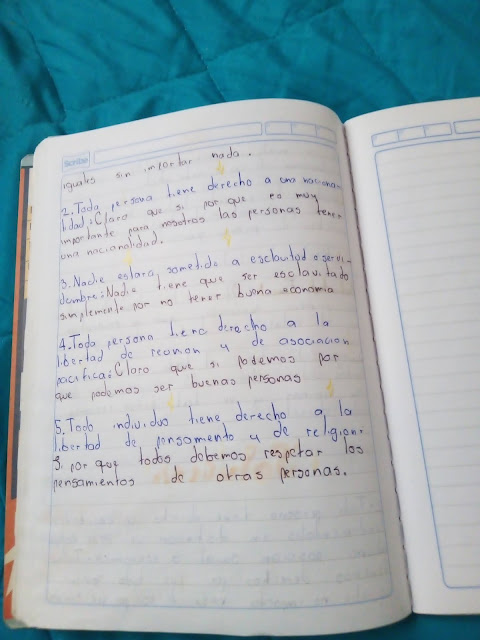 Scribe
iguales sin importar nada.
2. Toda persona tiene derecho a una naciona-
lidad: Claro que si por que es muy
importante para nosotros las personas tener
una nacionalidad.
3. Nadie estara sometido a esclavitud o servi-
dumbre: Nadie tiene que ser esclavitado
simplemente por no tener buena economia
4. Toda persona tiene derecho a la
libertad de reunion y de asociacion
pacifica: Claro que si podemos por
que podemos ser buenas personas
5. Todo individuo tiene derecho a la
libertad de pensamento y de religion:
Si por que todos debemos respetar los
pensamientos de otras personas.